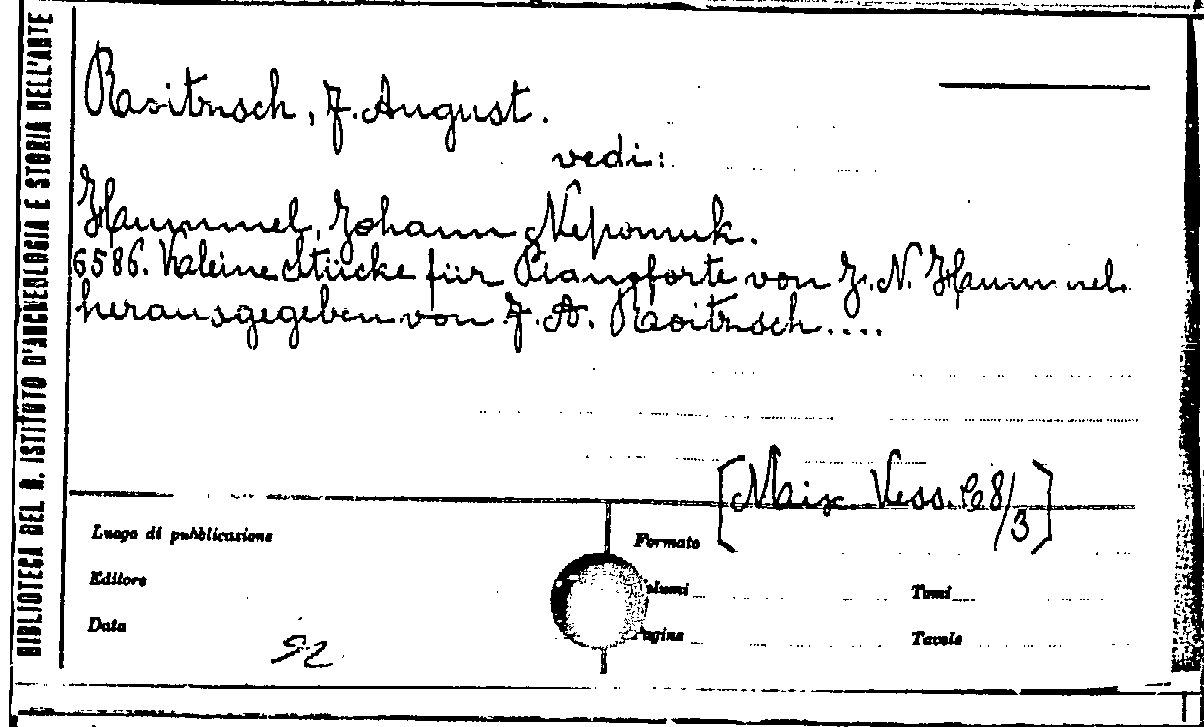 BIBLIOTECA DEL R. ISTITUTO D'ARCHEOLOGIA E STORIA DELL'ARTE
Roitzsch, F. August.
vedi:
Hummel, Johann Nepomuk.
6586. Kleine Stücke für Pianoforte von J. N. Hummel
herausgegeben von F. A. Roitzsch....
[Vess. C 8/3]
Luogo di pubblicazione
Formato
Editore
Volumi
Tomi
Data
Pagine
Tavole
92